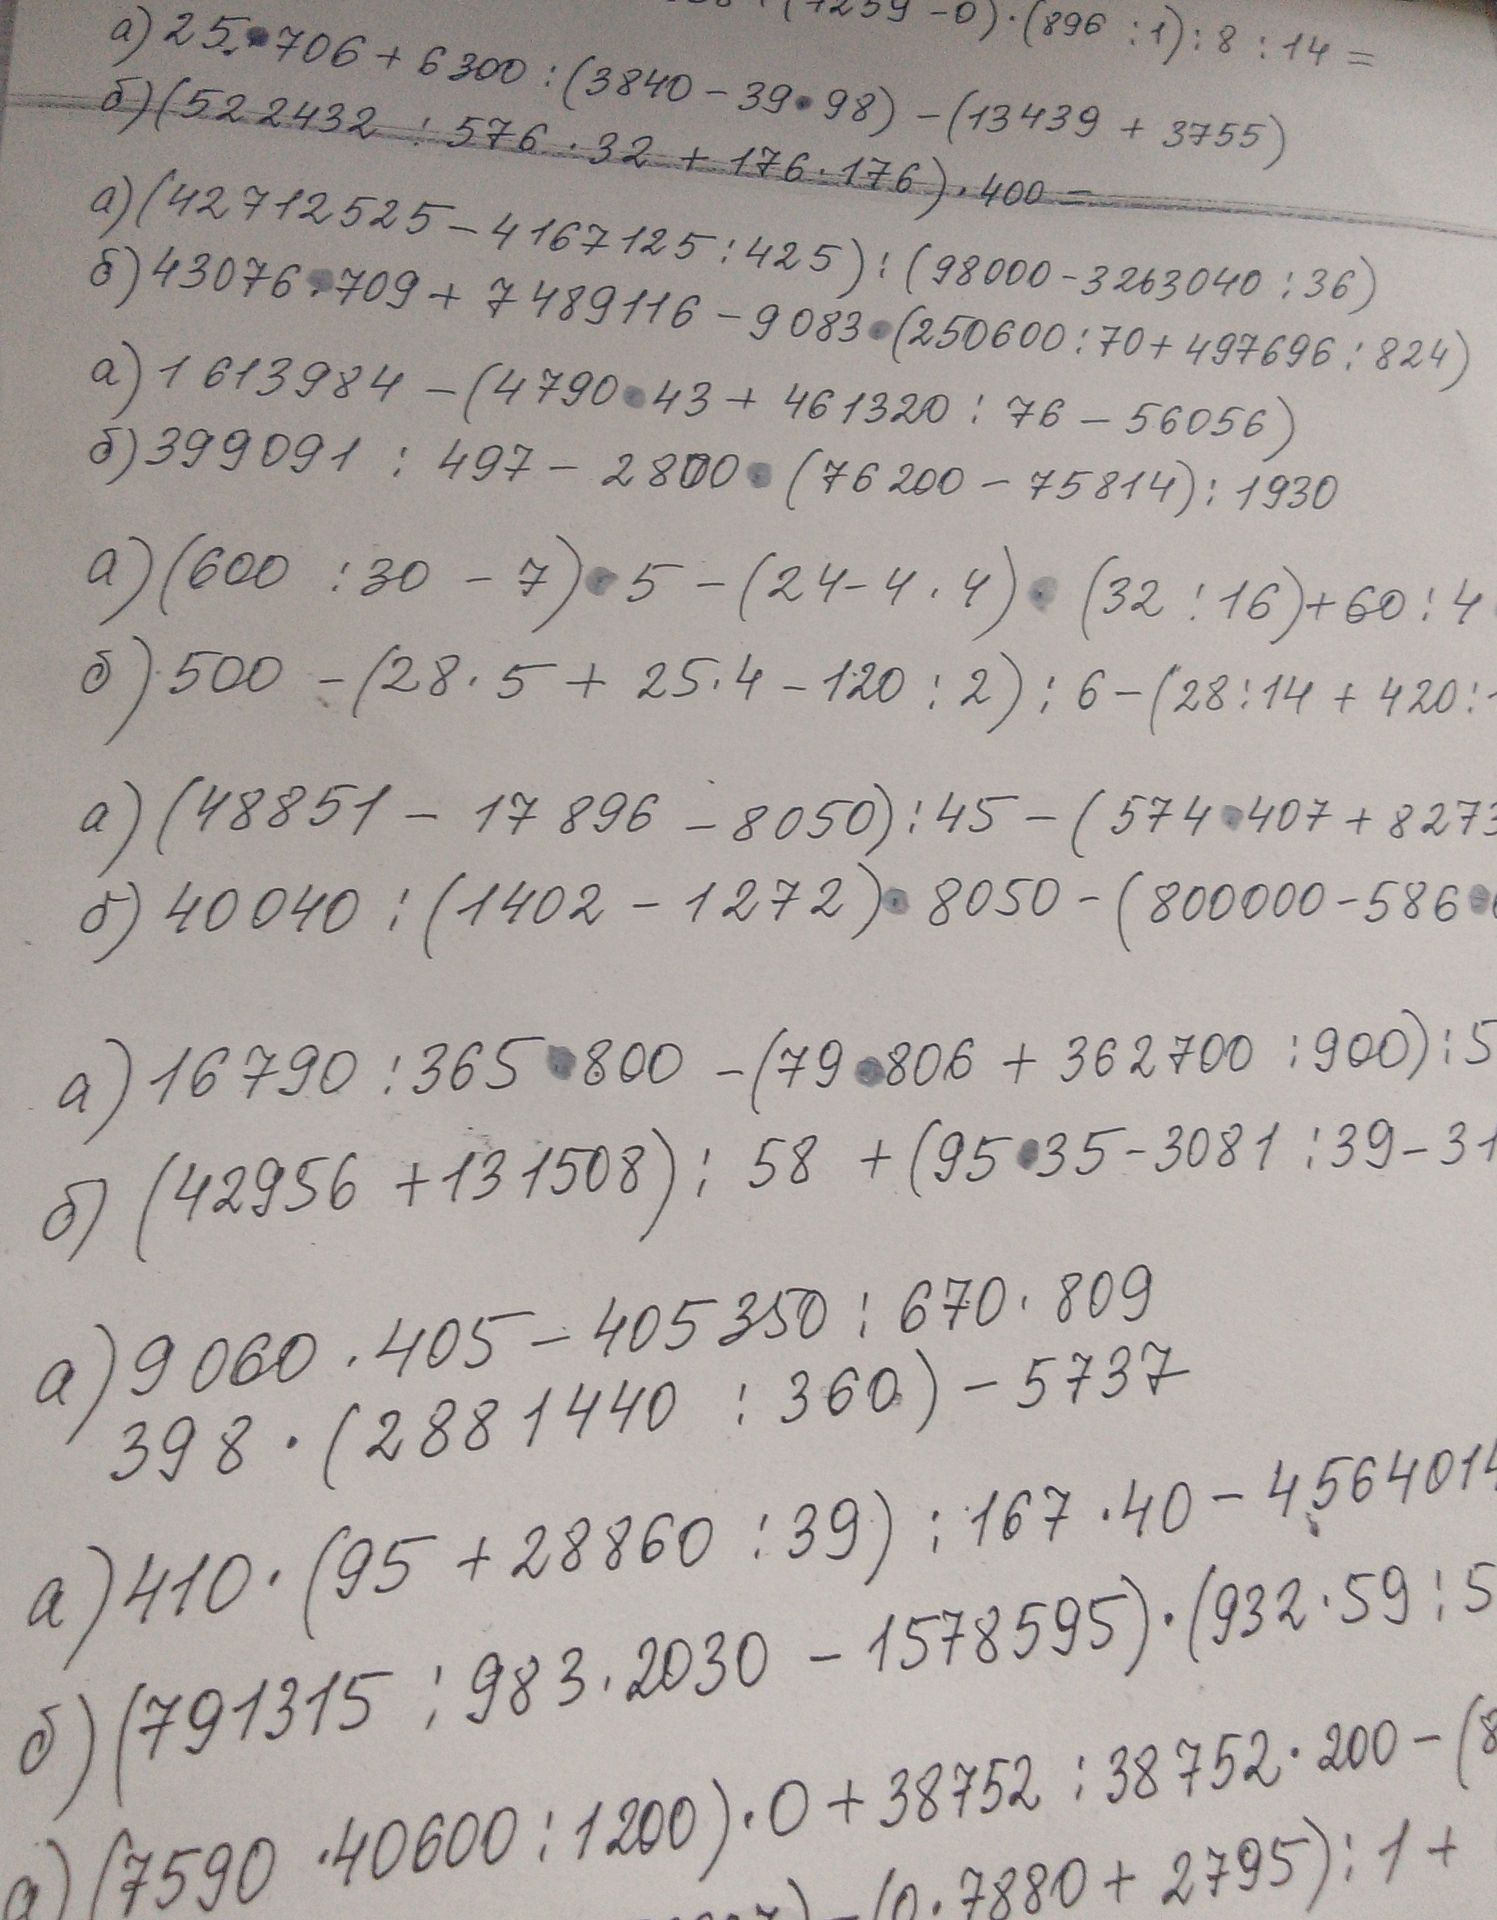 (1259 - 0) · (896 : 1) : 8 : 14 =
а) 25 · 706 + 6300 : (3840 - 39 · 98) - (13439 + 3755)
б) (522432 : 576 · 32 + 176 · 176) · 400 =
а) (42712525 - 4167125 : 425) : (98000 - 3263040 : 36)
б) 43076 · 709 + 7489116 - 9083 · (250600 : 70 + 497696 : 824)
а) 1613984 - (4790 · 43 + 461320 : 76 - 56056)
б) 399091 : 497 - 2800 · (76200 - 75814) : 1930
а) (600 : 30 - 7) · 5 - (24 - 4 · 4) · (32 : 16) + 60 : 4
б) 500 - (28 · 5 + 25 · 4 - 120 : 2) : 6 - (28 : 14 + 420 :
а) (48851 - 17896 - 8050) : 45 - (574 · 407 + 8273
б) 40040 : (1402 - 1272) · 8050 - (800000 - 586 ·
а) 16790 : 365 · 800 - (79 · 806 + 362700 : 900) : 5
б) (42956 + 131508) : 58 + (95 · 35 - 3081 : 39 - 31
а) 9060 · 405 - 405350 : 670 · 809
398 · (2881440 : 360) - 5737
а) 410 · (95 + 28860 : 39) : 167 · 40 - 4564014
б) (791315 : 983 · 2030 - 1578595) · (932 · 59 : 5
а) (7590 · 40600 : 1200) · 0 + 38752 : 38752 · 200 - (8
) - (0 · 7880 + 2795) : 1 +